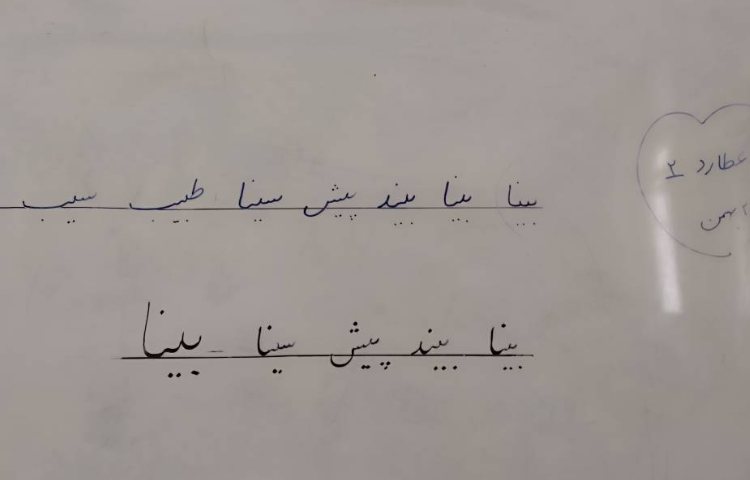 عطارد ۲
بهمن
بینا بینا ببیند پیش سینا طبیب سیب
بینا ببیند پیش سینا بینا